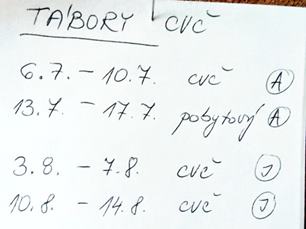 TÁBORY CVČ
6.7. – 10.7. CVČ Ⓐ
13.7. – 17.7. pobytový Ⓐ
3.8. – 7.8. CVČ Ⓙ
10.8. – 14.8. CVČ Ⓙ